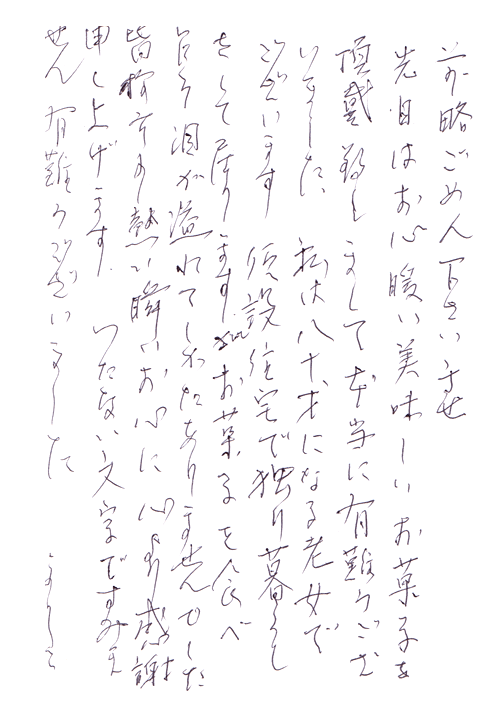 前略ごめん下さいませ
先日はお心暖い美味しいお菓子を
頂戴致しまして本当に有難うござ
いました 私は八十才になる老女で
ございます 仮設住宅で独り暮らし
をして居ります お菓子を食べ
乍ら涙が溢れてしかたありませんでした
皆様方の熱い お心に 心より感謝
申し上げます つたない文字ですみま
せん 有難うございました